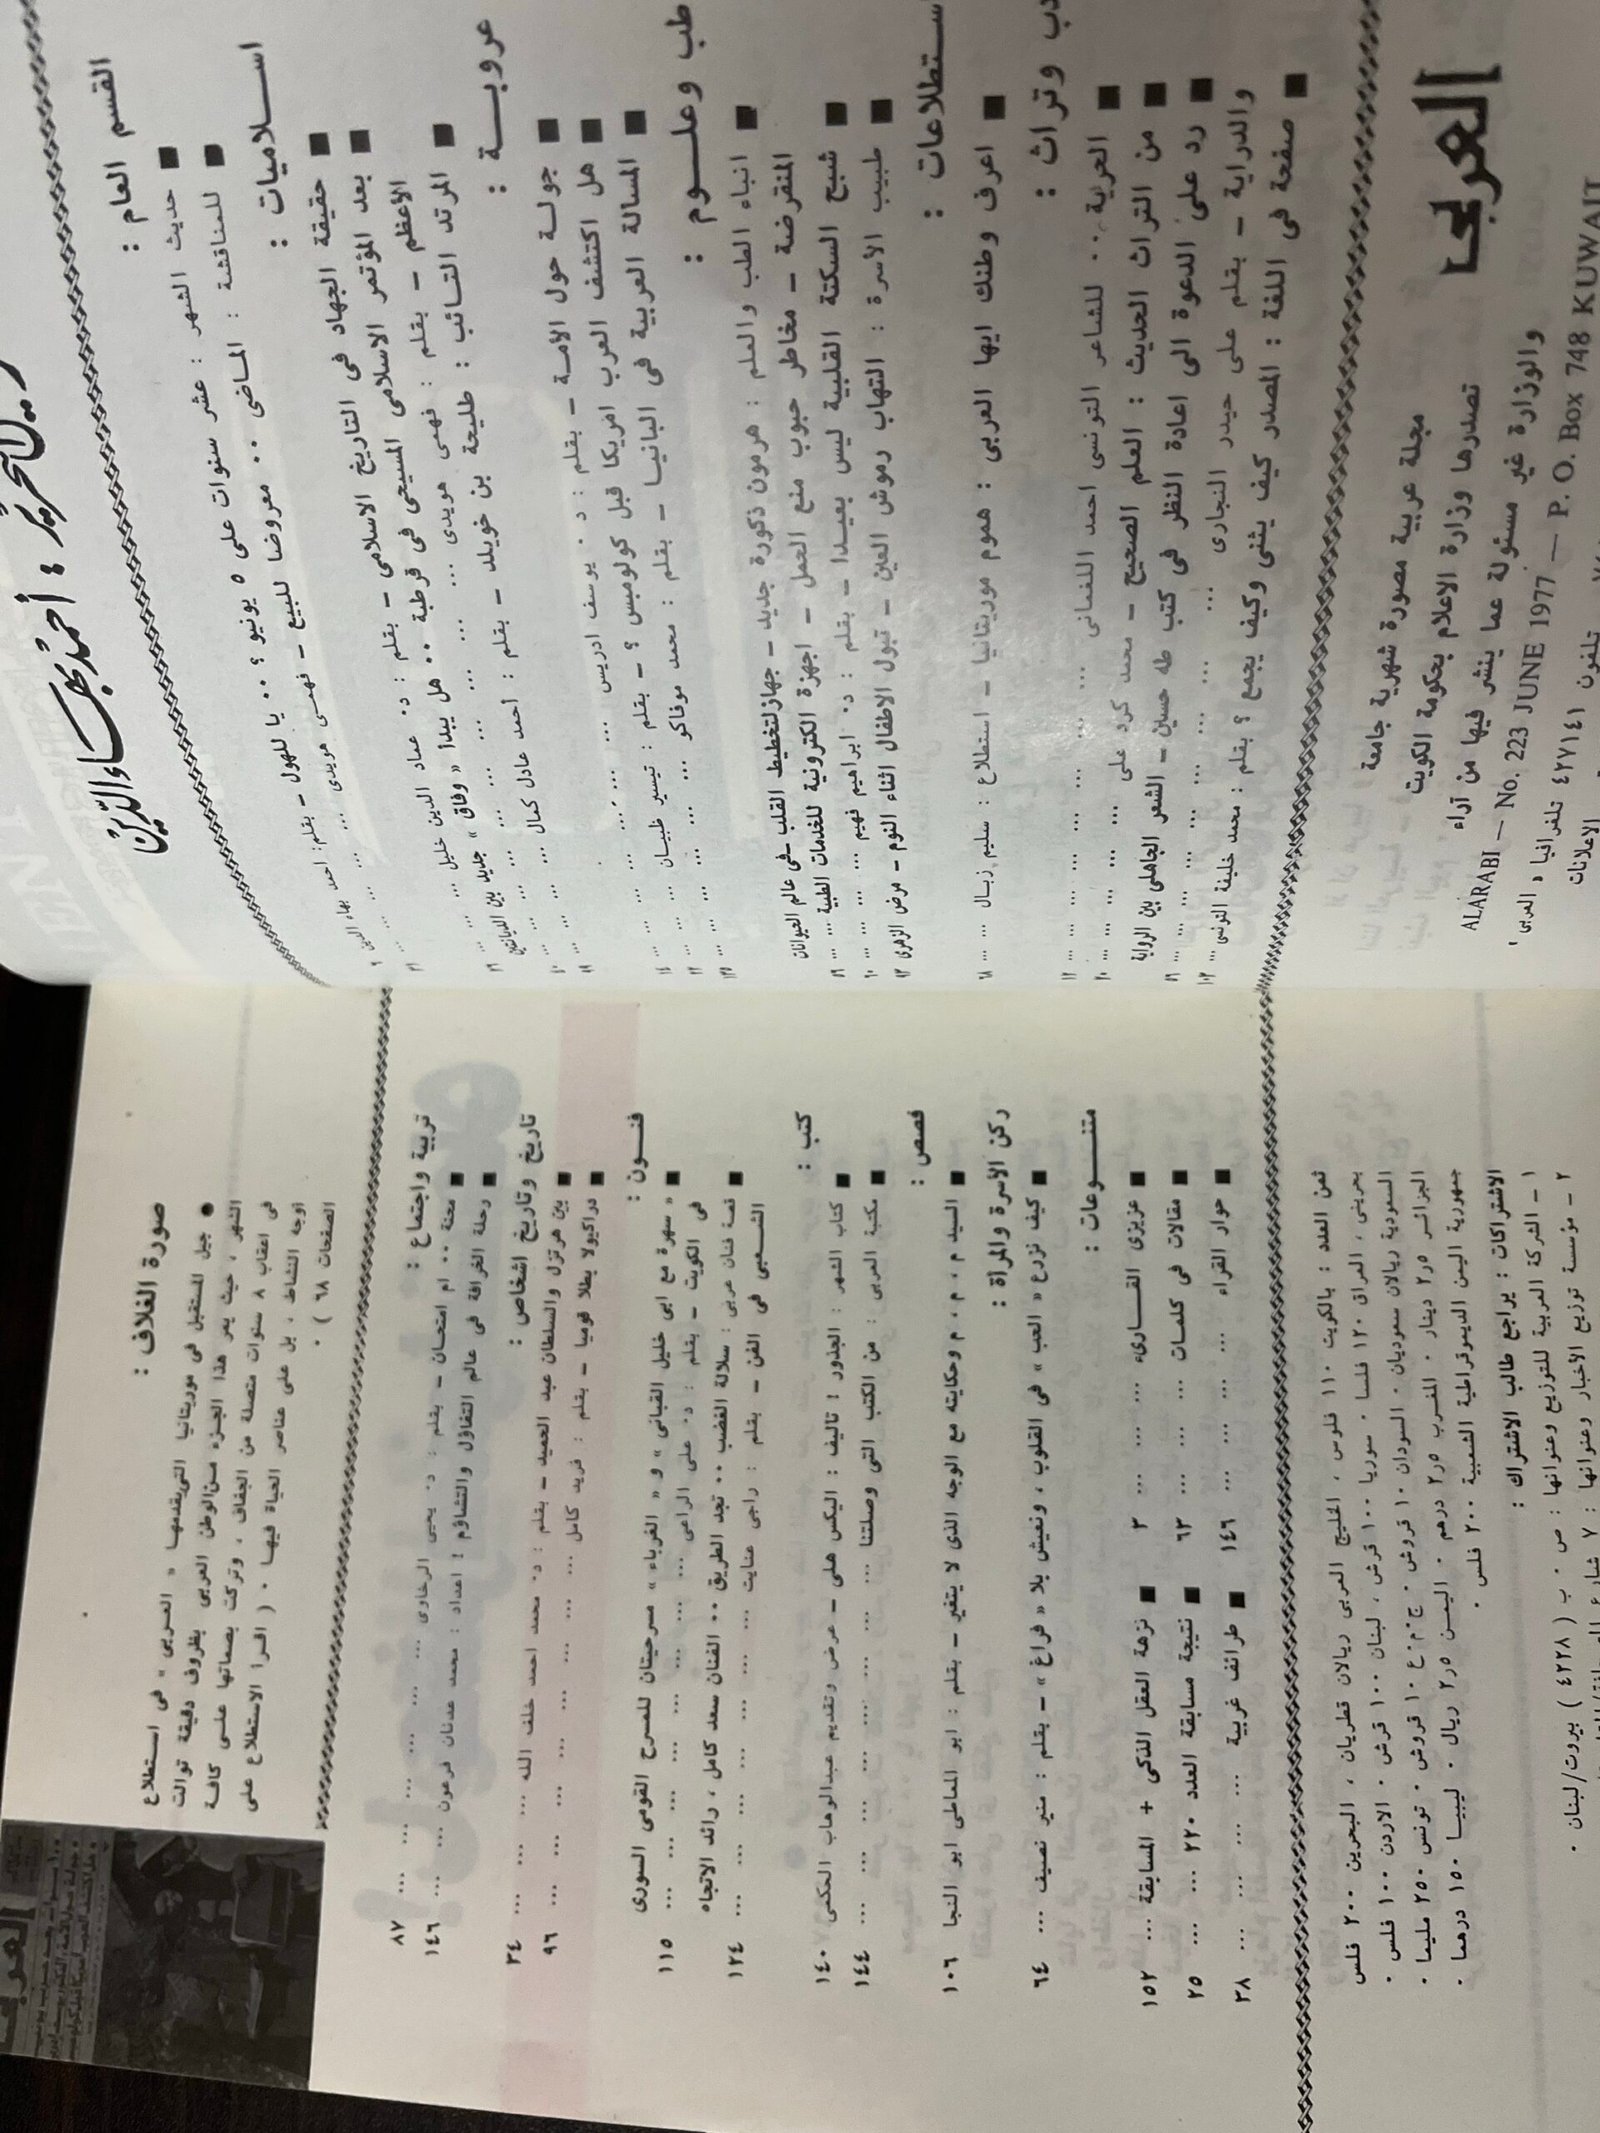 رئيس التحرير : أحمد بهاء الدين
القسم العام :
■ حديث الشهر : عشر سنوات على ٥ يونيو ؟ .. يا للهول - بقلم : احمد بهاء الدين
■ للمناقشة : الماضى .. معروضا للبيع - فهمى هويدى ...
اسـلاميات :
■ حقيقة الجهاد فى التاريخ الاسلامى - بقلم : د. عماد الدين خليل ...
■ بعد المؤتمر الاسلامى المسيحى فى قرطبة .. هل يبدأ « وفاق » جديد بين الديانتين
الأعظم - بقلم : فهمى هويدى ...
■ المرتد التـائب : طليحة بن خويلد - بقلم : أحمد عادل كمال ...
عروبـــة :
■ جولـة حول الأمـة - بقلم : د . يوسف ادريس ...
■ هل اكتشف العرب امريكا قبل كولومبس ؟ - بقلم : تيسير ظبيـان ...
■ المسالة العربية فى البانيـا - بقلم : محمد موفاكو ...
طب وعلــوم :
■ انباء الطب والعلم : هرمون ذكورة جديد - جهاز لتخطيط القلب - فى عالم الحيوانات
المنقرضة - مخاطر حبوب منع الحمل - اجهزة الكترونية للخدمات الطبية ...
■ شبح السكتة القلبية ليس بعيـدا - بقلم : د. ابراهيم فهيم ... ٦٠
■ طبيب الأسرة : التهاب رموش العين - تبول الاطفال اثناء النوم - مرض الزهرى ٩٣
استطلاعات :
■ اعرف وطنك ايها العربى : هموم موريتانيا - استطلاع : سليم زبـال ... ٦٨
أدب وتراث :
■ الحرية .. للشاعر التونسى احمد اللغمانى ...
■ من التراث الحديث : العلم الصحيح - محمد كرد على ...
■ رد على الدعوة الى اعادة النظر فى كتب طه حسين - الشعر الجاهلى بين الرواية
والدراية - بقلم على حيدر النجارى ...
■ صفحة فى اللغة : المصدر كيف يثنى وكيف يجمع ؟ بقلم : محمد خليفة التونسى ...
العربى
مجلة عربية مصورة شهرية جامعة
تصدرها وزارة الاعلام بحكومة الكويت
والوزارة غير مسئولة عما ينشر فيها من آراء
ALARABI — No. 223 JUNE 1977 — P. O. Box 748 KUWAIT
تلفون ٤٢٧١٤١ تلغرافيا « العربى »
الاعلانات
صورة الغلاف :
● جيل المستقبل فى موريتانيا التى يقدمهـا « العـربى » فى استطلاع
الشهر ، حيث يمر هذا الجـزء مـن الوطن العربى بظروف دقيقة توالت
فى اعقاب ٨ سنوات متصلة من الجفاف ، وتركت بصماتها علـى كافـة
اوجه النشاط ، بل على عناصر الحياة فيهـا . ( اقـرا الاستطلاع على
الصفحات ٦٨ ) .
تربية واجتماع :
■ محنة .. ام امتحـان - بقلم : د. يحيى الرخاوى ... ٨٧
■ رحلة الخرافة فى عالم التفاؤل والتشاؤم : اعداد : محمد عدنان فرعون ... ١٤٦
تاريخ وتاريخ اشخاص :
■ بين هرتزل والسلطان عبد الحميد - بقلم : د. محمد احمد خلف الله ... ٣٤
■ دراكيولا بطلا قوميا - بقلم : فريد كامل ... ٩٦
فنــون :
■ « سهرة مع ابى خليل القبانى » و « الغرباء » مسرحيتان للمسرح القومى السورى
فى الكويت - بقلم : د. على الراعى ... ١١٥
■ قصة فنان عربى : سلالة الغضب .. تجد الطريق .. الفنان سعد كامل ، رائد الاتجاه
الشعبى فى الفن - بقلم : راجى عنايت ... ١٢٤
كتب :
■ كتاب الشهر : الجذور : تاليف : اليكس هلى - عرض وتقديم عبدالوهاب الحكمى ١٤٠
■ مكتبة العربى : من الكتب التى وصلتنا ... ١٤٤
قصص :
■ السيد م . م . م وحكايته مع الوجه الذى لا يتغير - بقلم : ابو المعاطى ابو النجا ١٠٦
ركن الأسرة والمراة :
■ كيف نزرع « الحب » فى القلوب ، ونعيش بلا « فراغ » - بقلم : منير نصيف ... ٦٤
متنــوعات :
■ عزيزى القــارىء ... ٣
■ نزهة العقل الذكى + المسابقة ... ١٥٢
■ مقالات فى كلمـات ... ٦٣
■ نتيجة مسابقة العدد ٢٢٠ ... ٢٥
■ حوار القراء ... ١٤٦
■ طرائف غربية ... ٣٨
ثمن العدد : بالكويت ١١٠ فلوس ، الخليج العربى ريالان قطريان ، البحرين ٢٠٠ فلس
بحرينى ، العراق ١٢٠ فلسا . سوريا ١٠٠ قرش ، لبنان ١٠٠ قرش . الاردن ١٠٠ فلس .
السعودية ريالان سعوديان . السودان ١٠ قروش . ج.م.ع ١٠ قروش . تونس ٢٥٠ مليما .
الجزائـر ٢٫٥ دينار . المغـرب ٢٫٥ درهم . اليمـن ٢٫٥ ريال . ليبيـا ١٥٠ درهما .
جمهورية اليمن الديموقراطية الشعبية ٢٠٠ فلس .
الاشتراكات : يراجع طالب الاشتراك :
١ - الشركة العربية للتوزيع وعنوانها : ص . ب ( ٤٢٢٨ ) بيروت/لبنان .
٢ - مؤسسة توزيع الأخبار وعنوانها : ٧ شارع